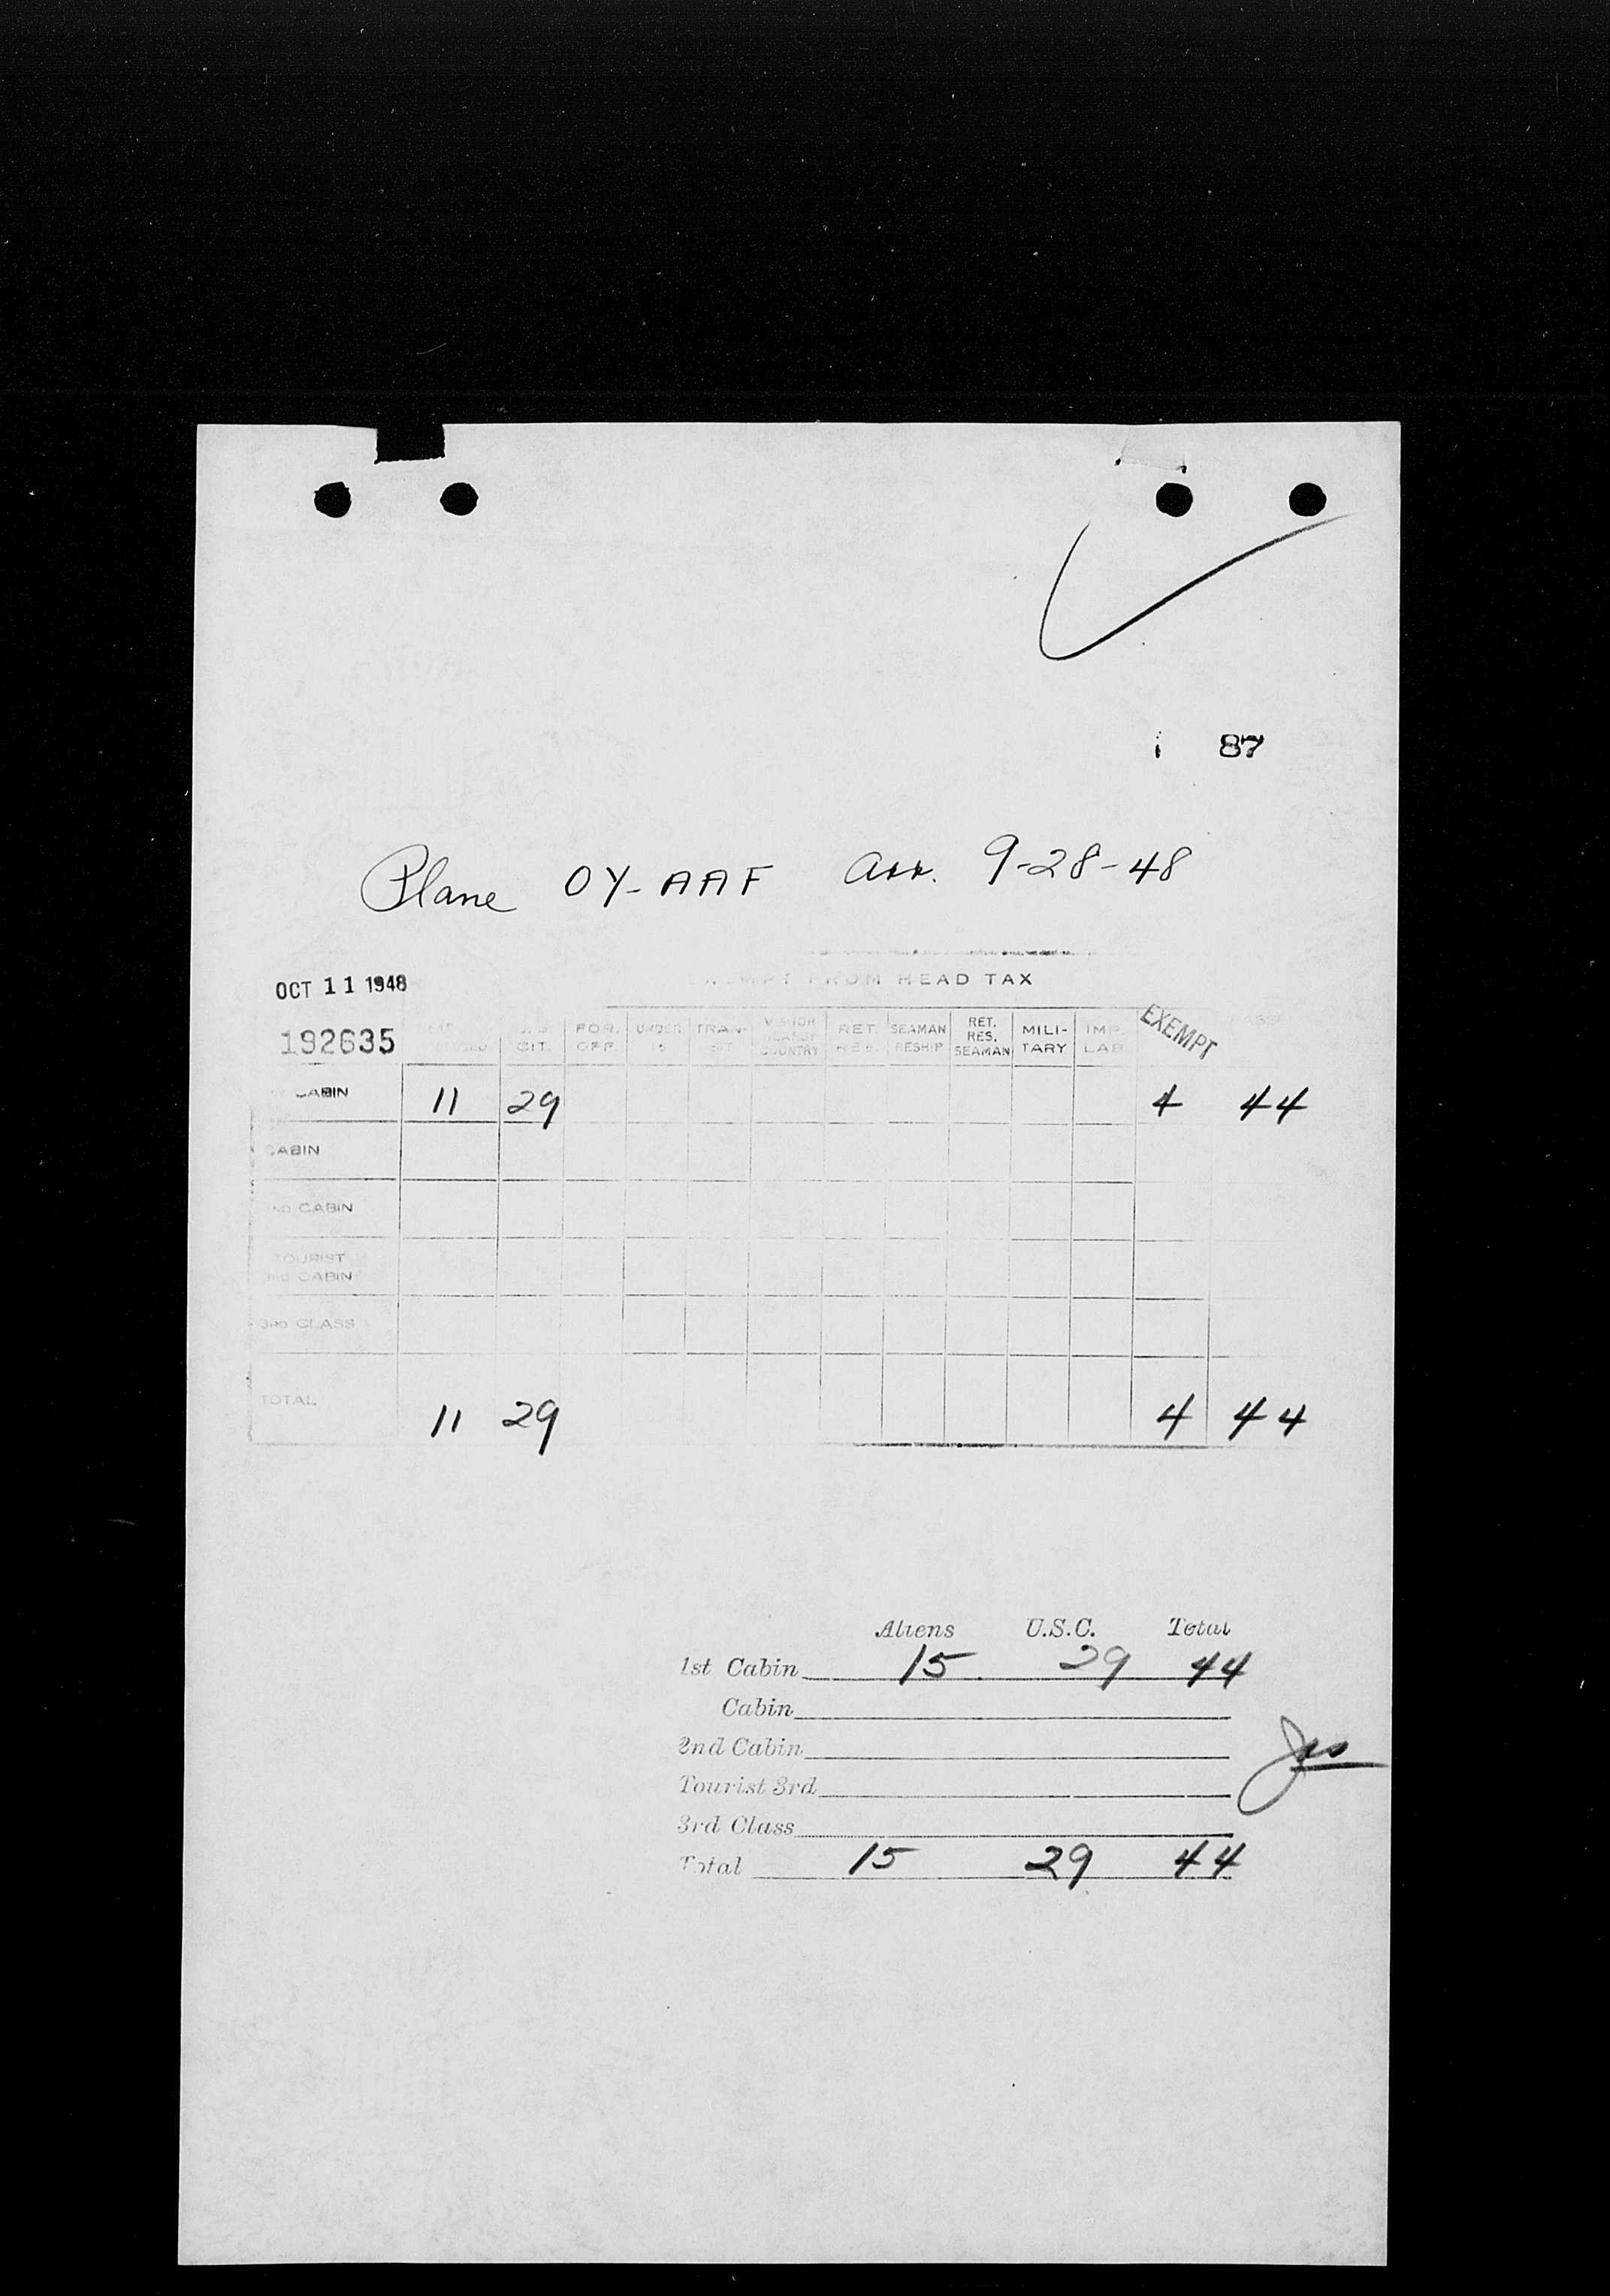 87
Plane OY-AAF arr. 9-28-48
OCT 11 1948
EXEMPT FROM HEAD TAX
192635 CIT. FOR. OFF. UNDER 16 TRAN- SIT COUNTRY RET. RES. SEAMAN RESHIP RET. RES. SEAMAN MILI- TARY IMP. LAB. EXEMPT
CABIN 11 29 4 44
CABIN
2ND CABIN
TOURIST
3RD CABIN
3RD CLASS
TOTAL 11 29 4 44
Aliens U.S.C. Total
1st Cabin 15 29 44
Cabin
2nd Cabin
Tourist 3rd
3rd Class
Total 15 29 44